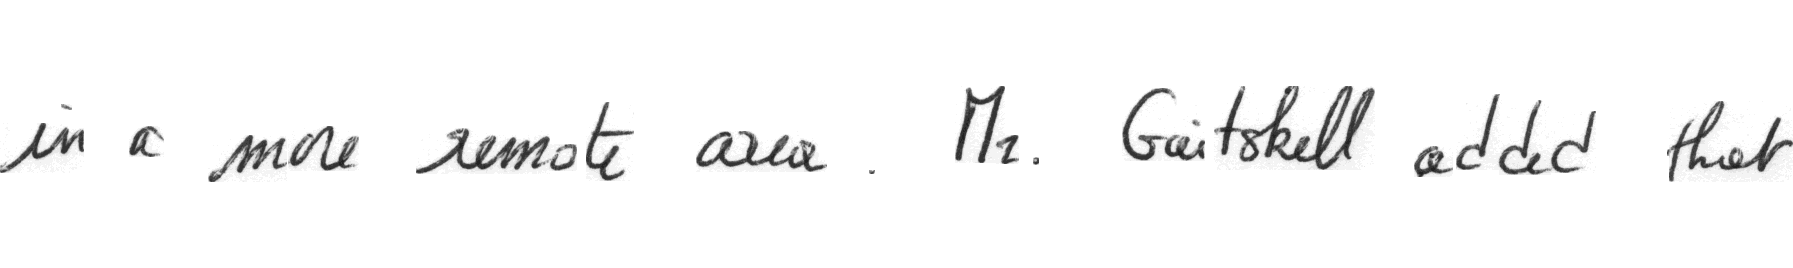 in a more remote area. Mr. Gaitskell added that